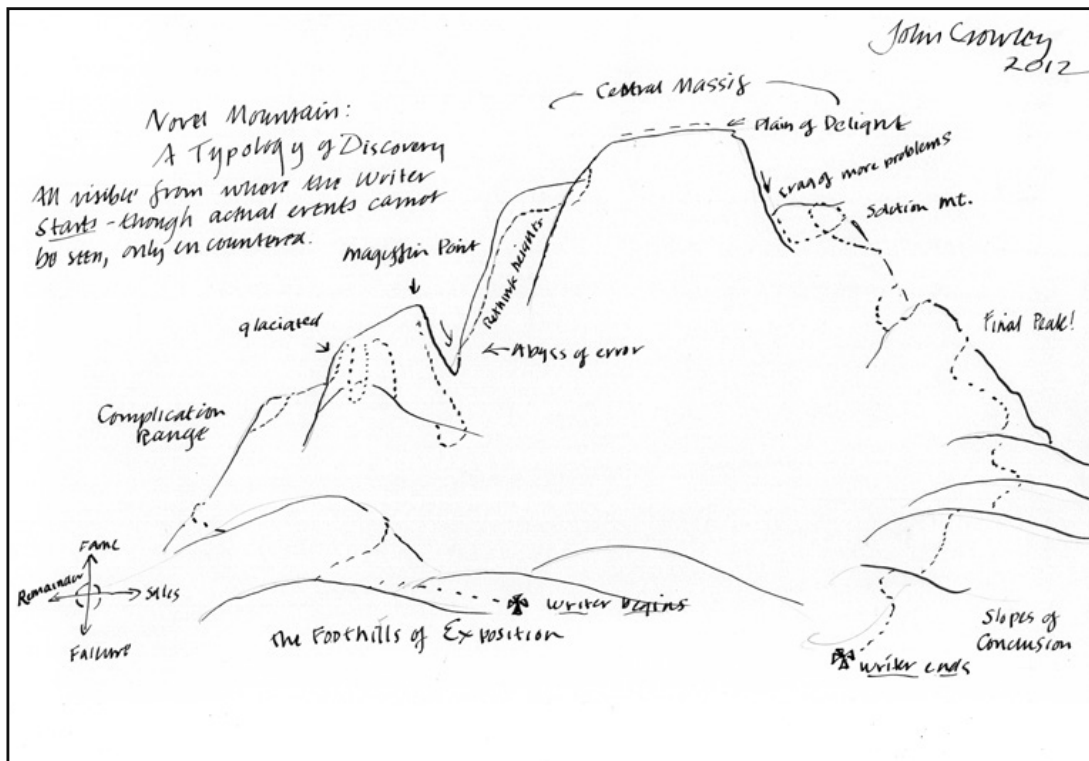 John Crowley
2012
Novel Mountain:
A Typology of Discovery
All visible from where the Writer
starts - though actual events cannot
be seen, only encountered.
Central Massif
← Plain of Delight
Crag of more problems
Solution Mt.
Magiffin Point
Rethink heights
glaciated
← Abyss of error
Final Peak!
Complication
Range
FAME
Remainder
Sales
Failure
Writer begins
The Foothills of Exposition
Slopes of
Conclusion
Writer ends